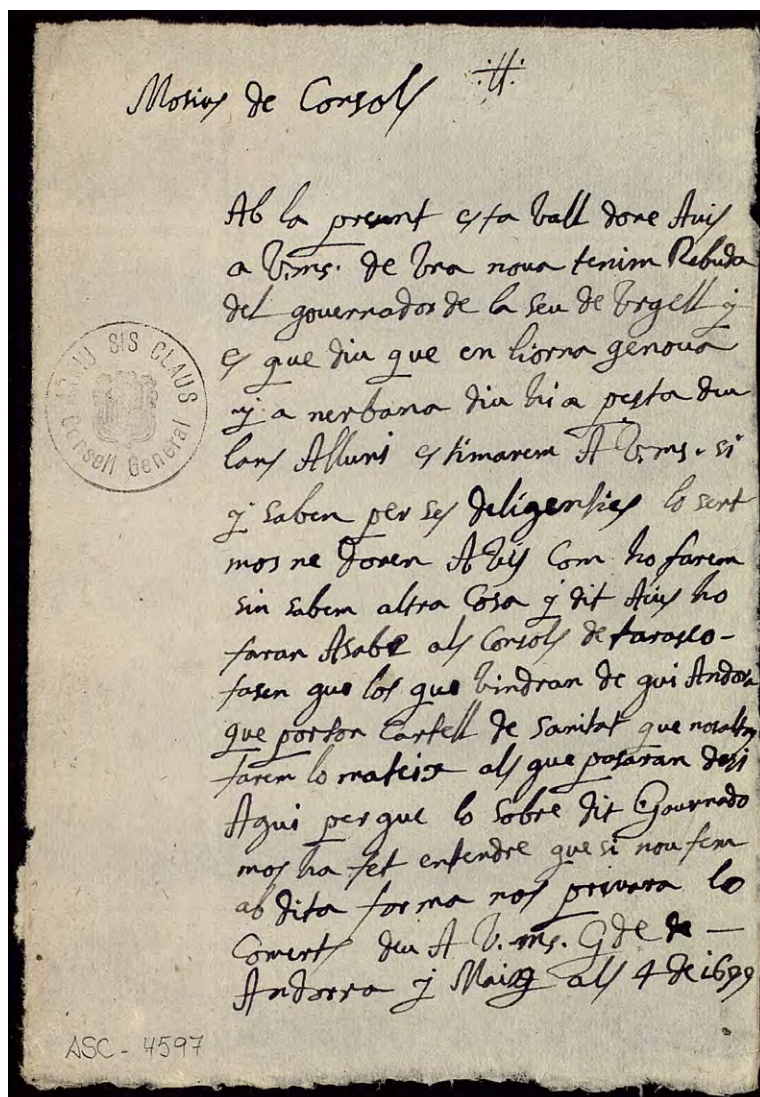 Mosius de Consols
Ab la present esta Vall done Avis
a V.ms. de Vna noua tenim Rebuda
del gouernador de la Seu de Vrgell y
es que diu que en liorna genoua
y a nerbana diu hi a pesta diu
lans Alluni estimarem A V.ms. si
y saben per ses deligensies lo sert
mos ne donen AVis Com ho farem
sin sabem altra Cosa y dit Auis ho
faran Asabe als Consols de tarasco
fasen que los que Vindran de qui Andora
que porton Cartell de Sanitat que nosaltres
farem lo mateix als que pasaran desi
Aqui perque lo sobre dit Gouernado
mos ha fet entendre que si nou fem
ab dita forma nos priuara lo
Comerts deu A V.ms. Gde de
Andorra y Maig als 4 de 1699
ARXIU SIS CLAUS
Consell General
ASC - 4597